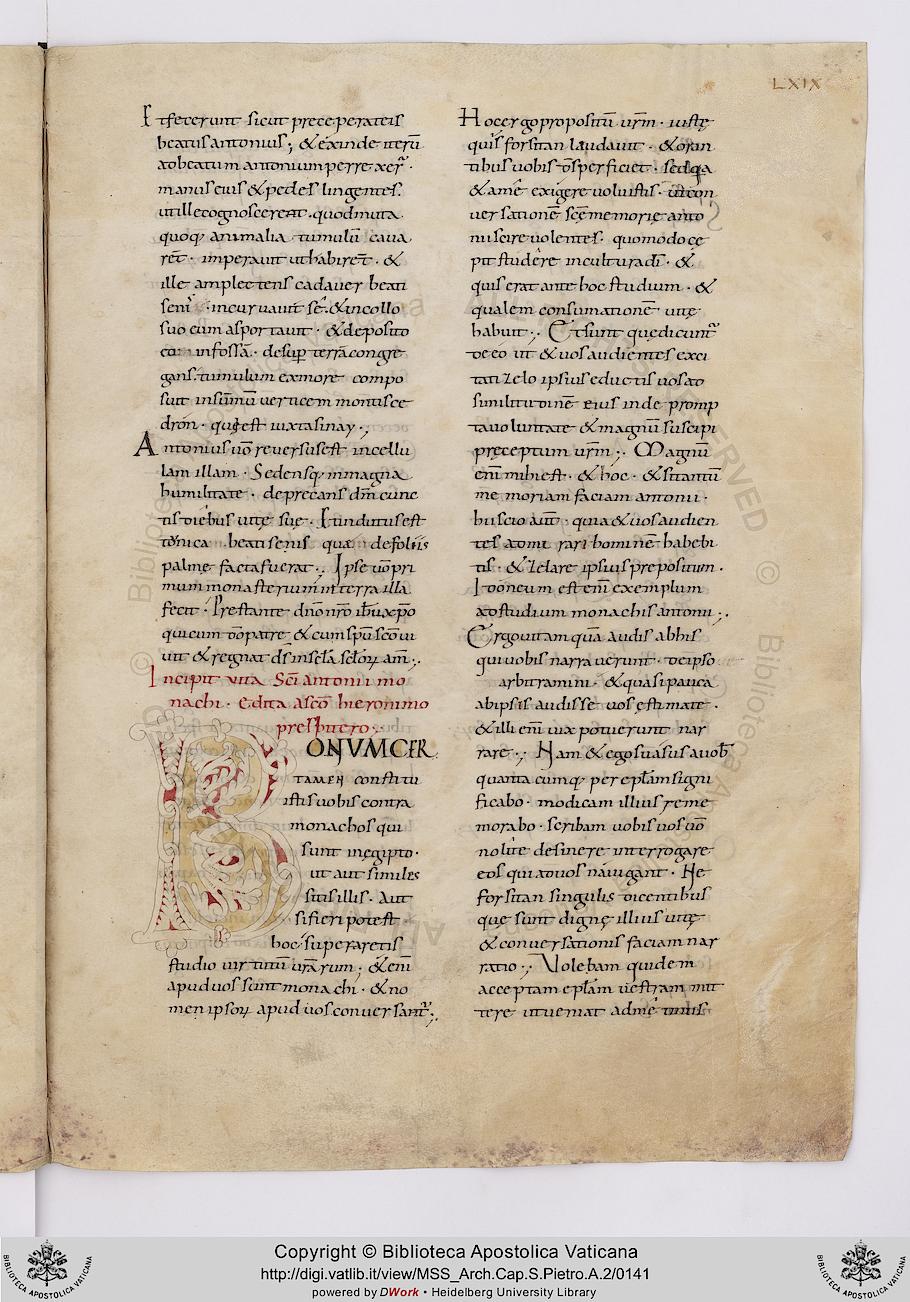 LXIX
Et fecerunt sicut preceperat eis
beatus antonius; & exinde iterū
ad beatum antonium perrexer̄ ·
manus eius & pedes lingentes.
ut ille cognosceret · quod muta
quoq; animalia tumulū cava
rēt · imperavit ut habirēt · &
ille amplectens cadaver beati
senis · incurvavit sē · & in collo
suo eum asportavit · & deposito
eo in fossā · desup terrā congre
gans · tumulum ex more compo
suit in sūmū verticem montis ce
dron · qui est iuxta sinay ·,
Antonius uō reversus est in cellu
lam illam · Sedensq; in magna
humilitate · deprecans dm̄ cunc
tis diebus vitę suę · Et indutus est
tonica beati senis quam de foliis
palmę facta fuerat ·, Ipse uō pri
mum monasterium in terra illa
fecit · Prestante dno nro ihu xpo
qui cum dō patre & cum spū scō vi
vit & regnat ds in scla sclor; am̄ ·,
Incipit vita Sci antonii mo
nachi · edita a scō hieronimo
presbitero ·,
BONUM CER
TAMEN constitu
istis vobis contra
monachos qui
sunt in egipto ·
ut aut similes
sitis illis · Aut
si fieri potest
hoc superaretis
studio virtutū vrarum; & enī
apud vos sunt monachi · & no
men ipsor; apud vos conversant̄ ·,
Hoc ergo propositū vrm̄ · iustę
quis forsitan laudavit · & oran
tibus vobis ds perficiet · sed qa
& a mē exigere voluistis · ut con
versationē scę memorię anto
nii scire volentes · quomodo cę
pit studēre in cultura dī · &
quis erat ante hoc studium · &
qualem consumationē vitę
habuit ·, Et sunt quę dicunt̄
de eo ut & vos audientes exci
tati zelo ipsius eductis vos ad
similitudinē eius inde promp
ta voluntate & magnū suscipi
preceptum vrm̄ ·, Magnū
enī mihi est · & hoc · & si tantū
memoriam faciam antonii ·
hii scio autē · quia & vos audien
tes admirari hominē habebi
tis · & zelare ipsius prepositum ·
Idoneum est enī exemplum
ad studium monachis antonii ·,
Ergo vitam quā audis ab his
qui vobis narraverunt · de ipso
arbitramini · & quasi pauca
ab ipsis audisse vos estimate ·
& illi enī vix potuerunt nar
rare ·, Nam & ego suasus a vob̄
quanta cumq; per eplam signi
ficabo · modicam illius reme
morabo · scribam vobis vos uō
nolite desinere interrogare
eos qui ad vos navigant · Ne
forsitan singulis dicentibus
quę sunt dignę illius vitę
& conversationis faciam nar
ratio ·, Volebam quidem
acceptam eplam vestram mit
tere ut veniat ad mē
Copyright © Biblioteca Apostolica Vaticana
http://digi.vatlib.it/view/MSS_Arch.Cap.S.Pietro.A.2/0141
powered by DWork • Heidelberg University Library
BIBLIOTECA APOSTOLICA VATICANA
BIBLIOTECA APOSTOLICA VATICANA